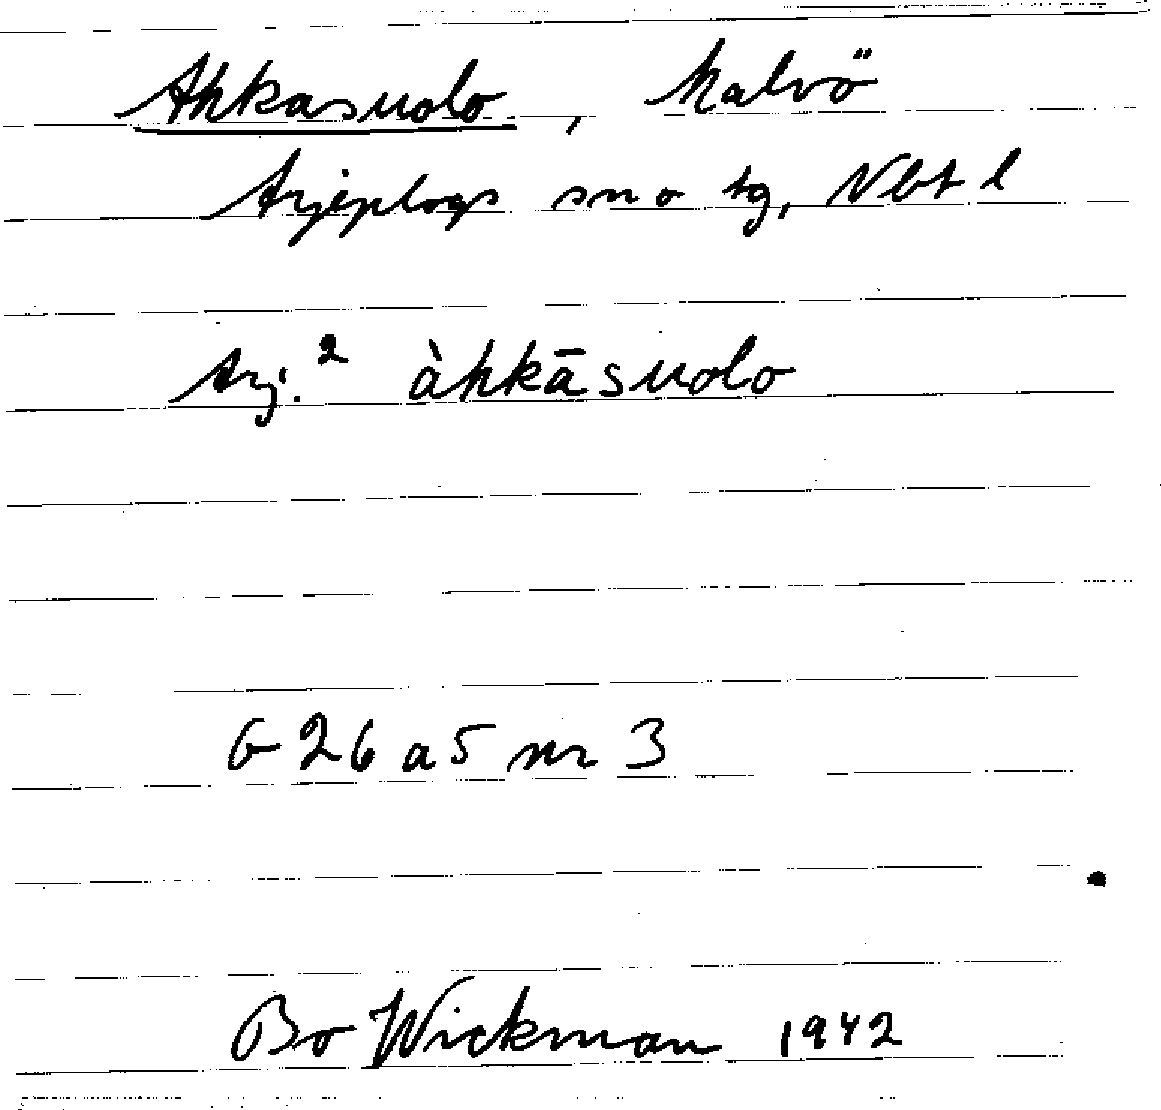 Ahkasuolo, halvö
Arjeplogs sn o tg, Nbt l
Arj.² àhkāsuolo
G 26 a 5 nr 3
Bo Wickman 1942